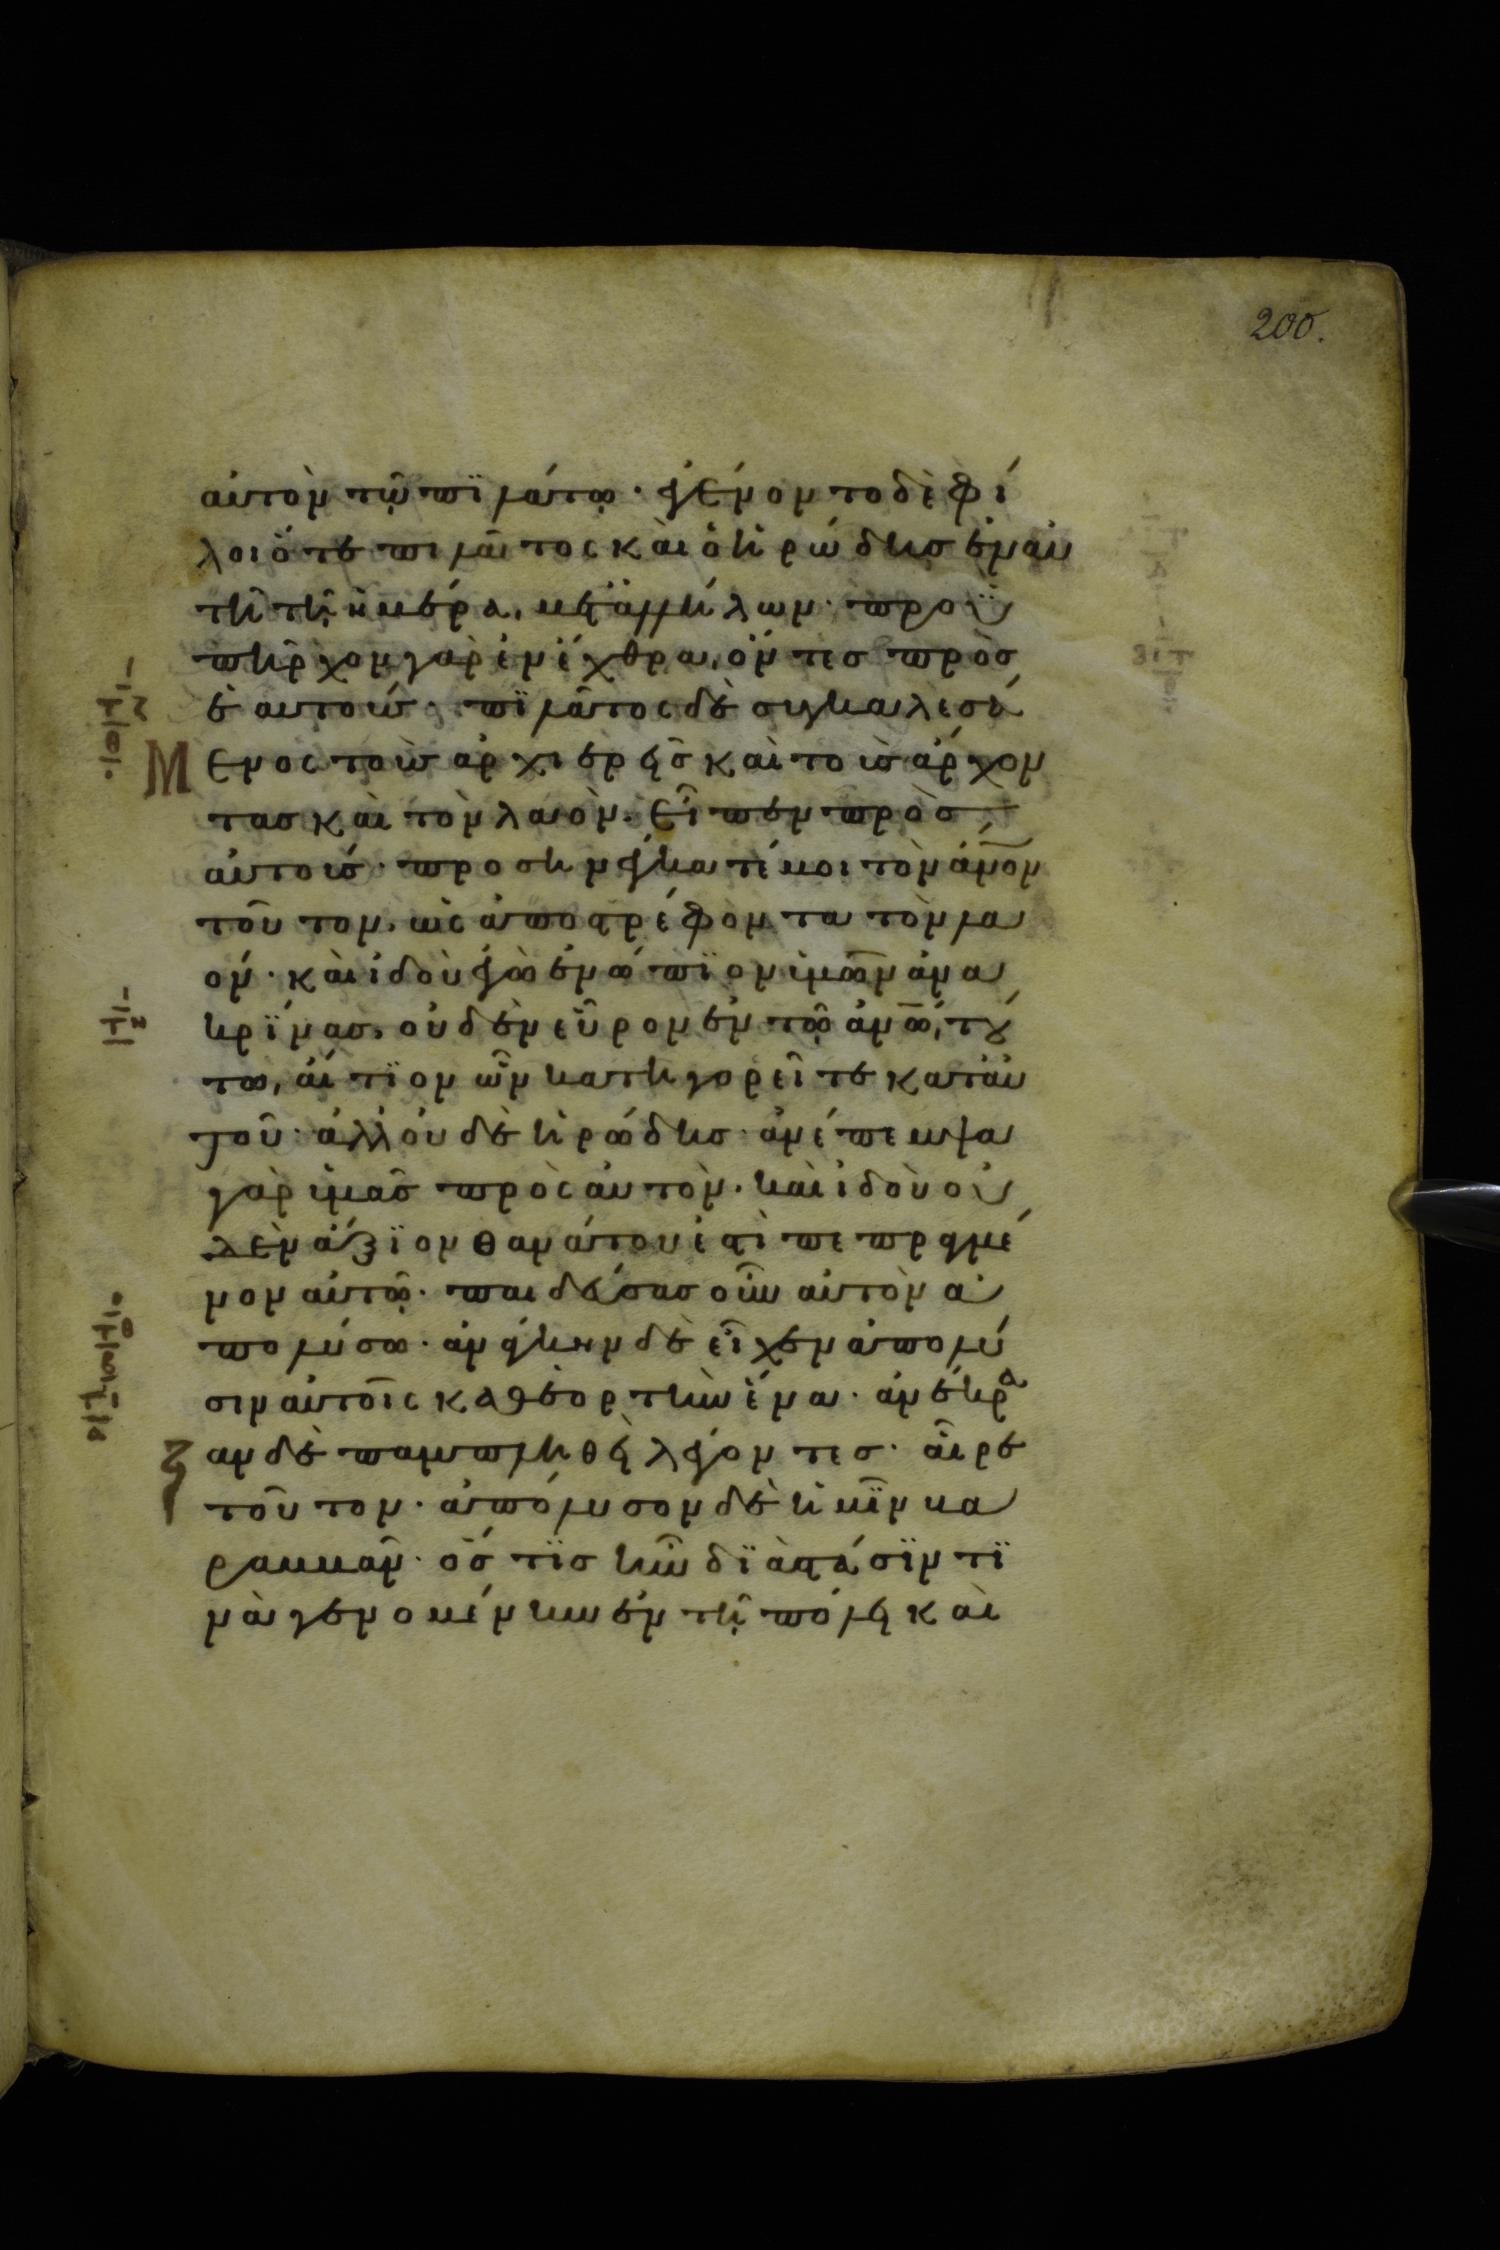 200.
αὐτὸν τῶ πϊλάτω· ἐγένοντο δὲ φί
λοι ὅτε πιλᾶτος καὶ ὁ ἡρώδησ ἐν αὐ
τῆ τῆ ἡμέρα, μετ' ἀλλήλων· προϋ
πῆρχον γὰρ ἐν ἔχθρα, ὄντεσ πρὸσ
ἑαυτούσ· πϊλᾶτος δὲ συγκαλεσά
Μενος τοὺσ ἀρχιερεῖσ καὶ τοὺσ ἄρχον
τασ καὶ τὸν λαὸν· εἶπεν πρὸσ
αὐτούσ· προσηνέγκατέ μοι τὸν ἄν̅ον
τοῦτον, ὡς ἀποστρέφοντα τὸν λα
όν· καὶ ἰδοὺ ἐγὼ ἐνώπϊον ὑμῶν ἀνα
κρίνασ, οὐδὲν εὗρον ἐν τῶ ἀν̅ω, τού
τω, αἴτϊον ὧν κατηγορεῖτε κατ' αὐ
τοῦ· ἀλλ' οὐδὲ ἡρώδησ· ἀνέπεμψα
γὰρ ὑμᾶσ πρὸς αὐτὸν· καὶ ἰδοὺ οὐ
δὲν ἄξϊον θανάτου ἐστὶ πεπραγμέ
νον αὐτῶ· παιδεύσασ οὖν αὐτὸν ἀ
πολύσω· ἀνάγκην δὲ εἶχεν ἀπολύ
ειν αὐτοῖς κατὰ ἑορτὴν ἕνα· ἀνέκρα
ζαν δὲ παμπληθεὶ λέγοντεσ· αἶρε
τοῦτον· ἀπόλυσον δὲ ἡμῖν βα
ραββᾶν· ὅστϊσ ἦν δϊὰ στάσϊν τϊ
νὰ γενομένην ἐν τῆ πόλει καὶ